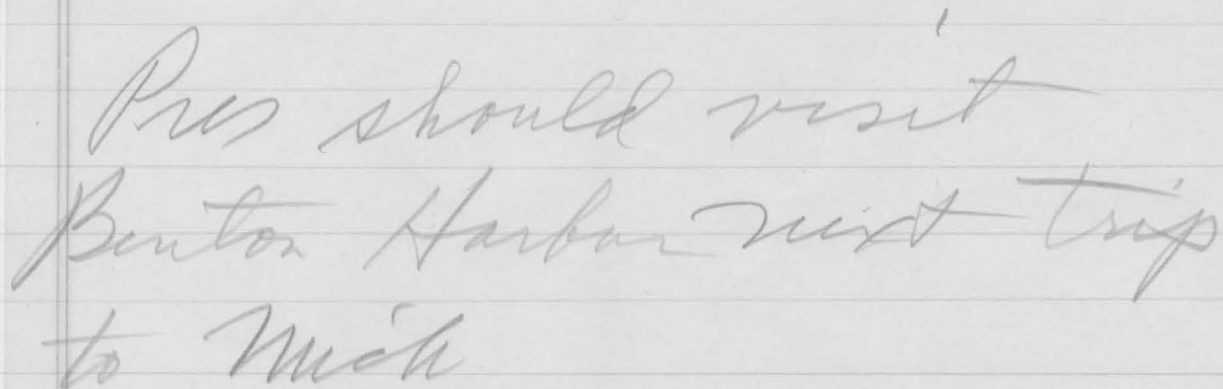 Pres should visit
Benton Harbor next trip
to Mich